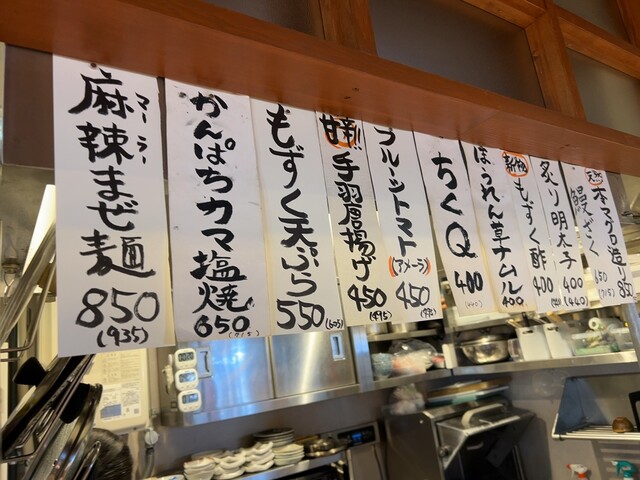 麻辣まぜ麺
マーラー
850
(935)
かんぱちカマ塩焼
650
(715)
もずく天ぷら
550
(605)
甘辛!!
手羽唐揚げ
450
(495)
フルーツトマト
(アメーラ)
450
(495)
ちくQ
400
(440)
ほうれん草ナムル
400
もずく酢
400
炙り明太子
400
(440)
鰻ざく
650
(715)
天然
本マグロ造り
850